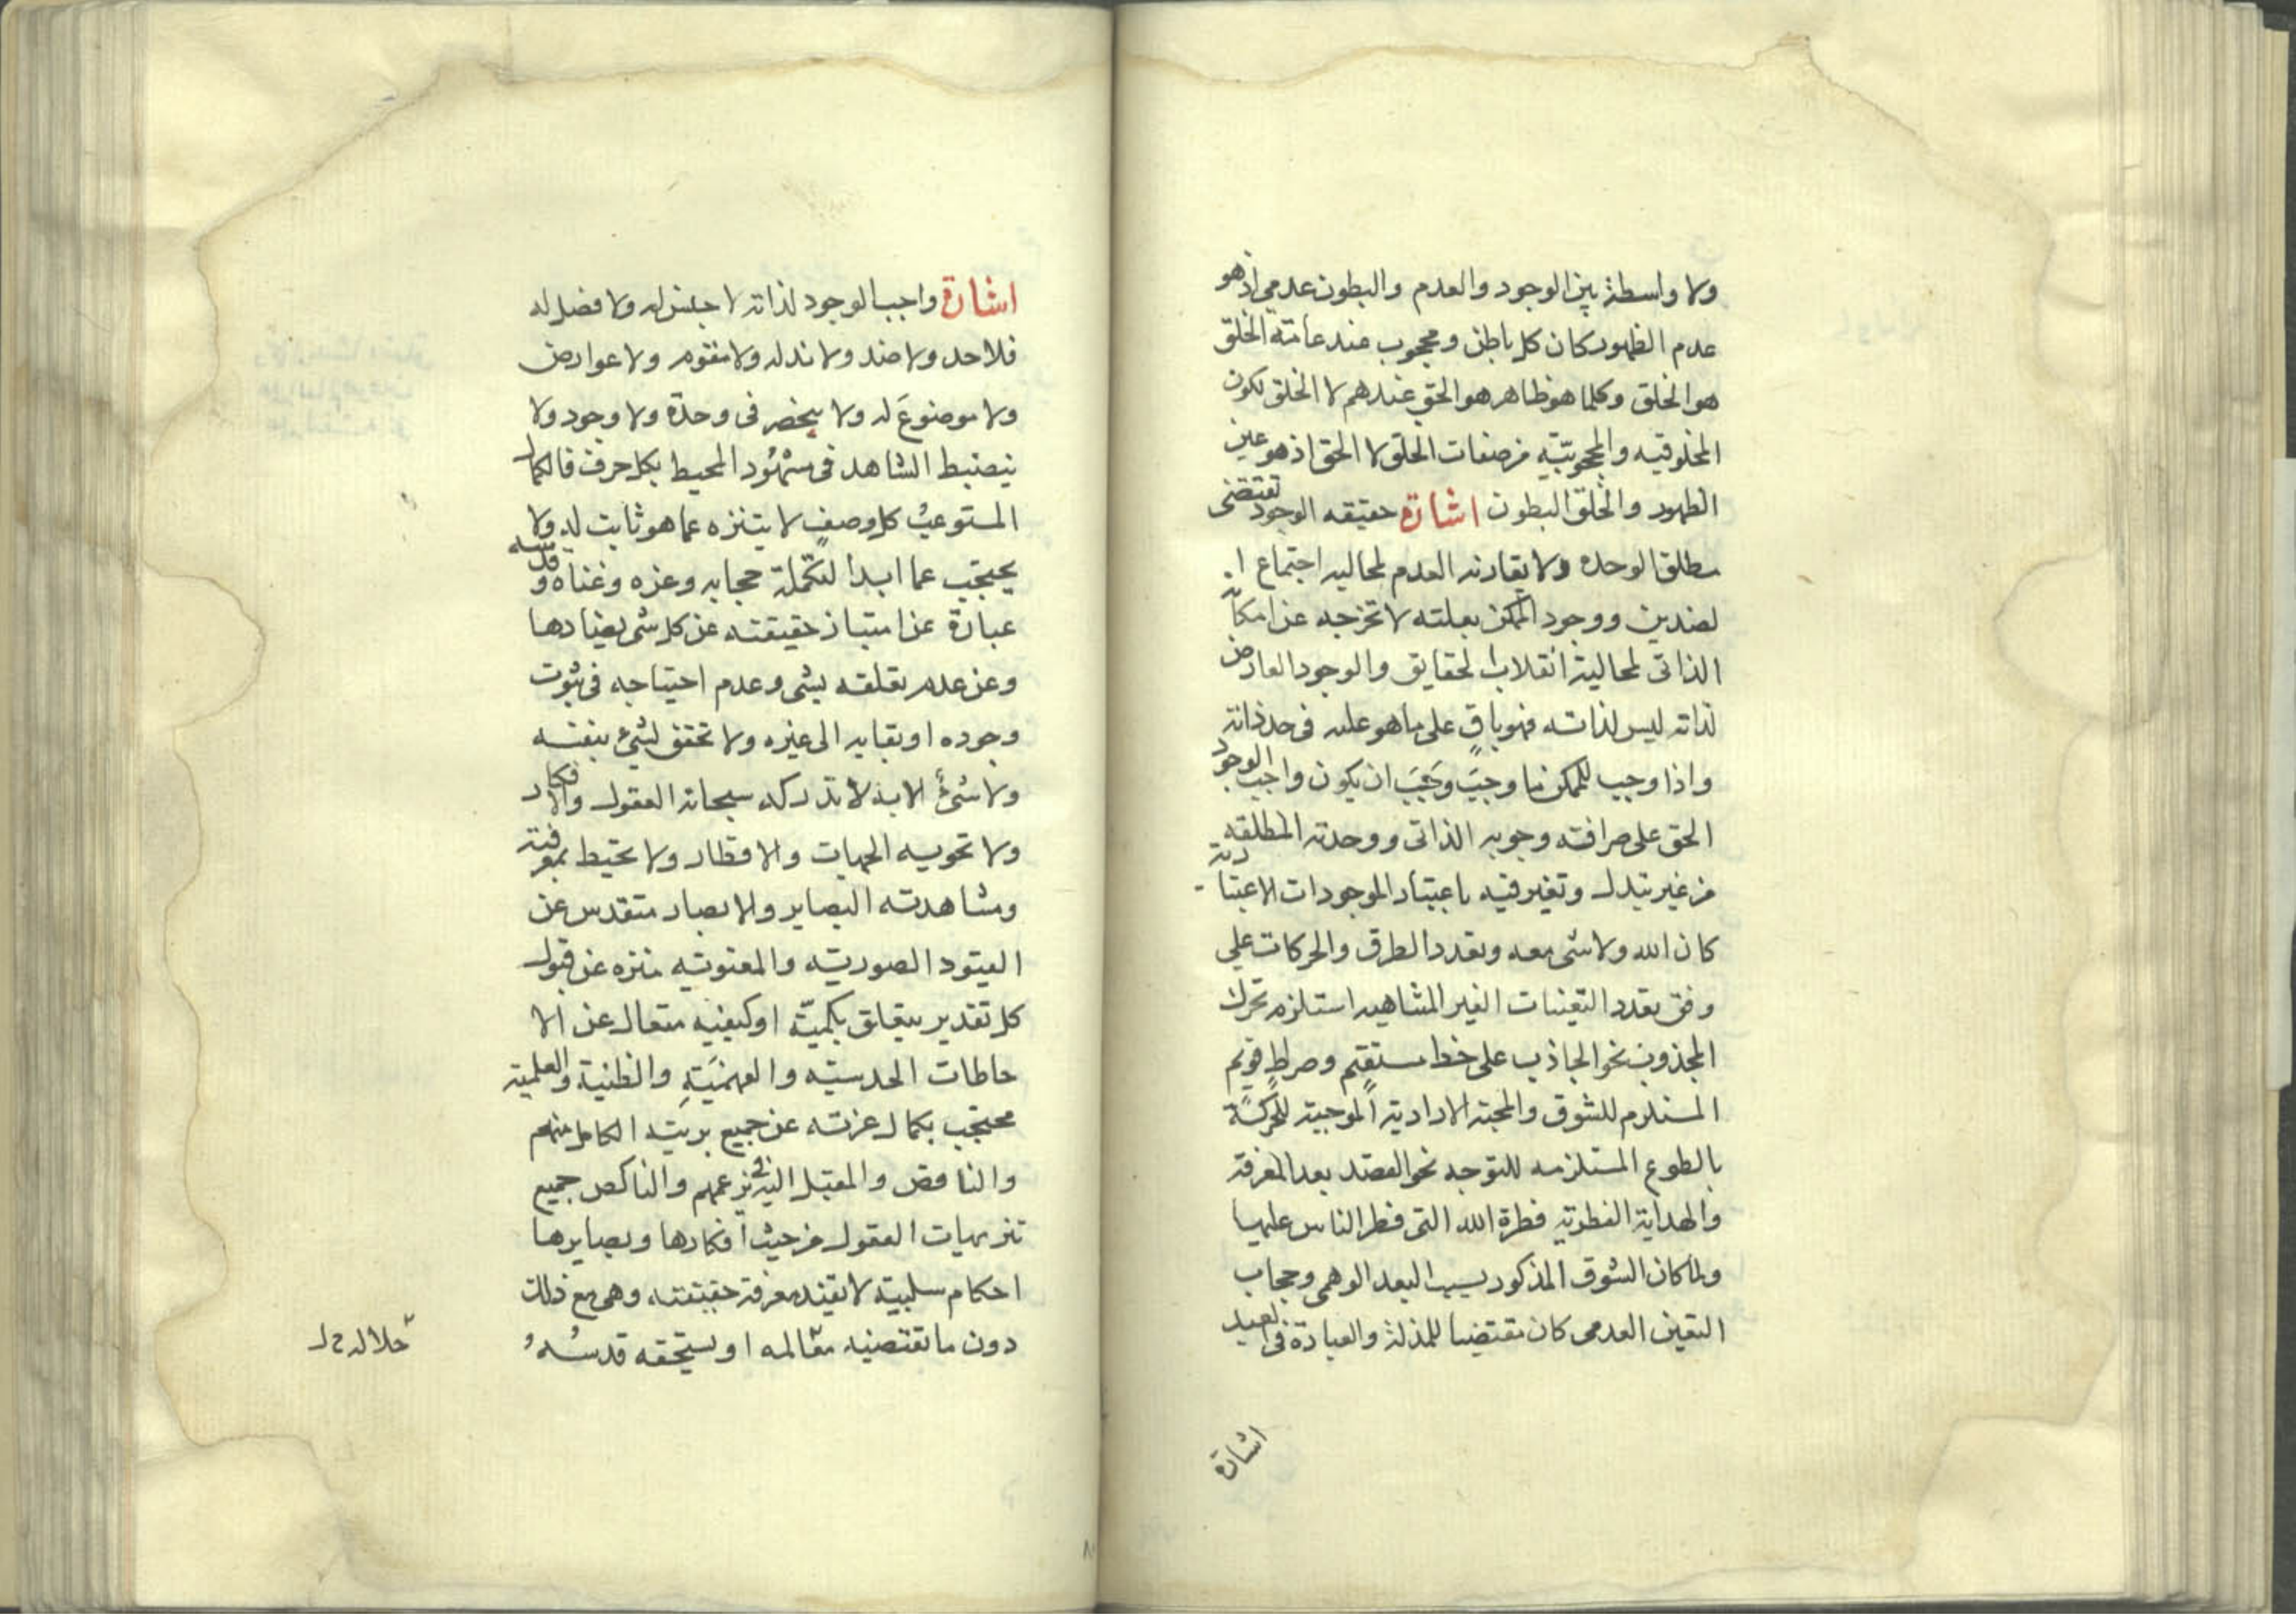 ولا واسطة بين الوجود والعدم والبطون عدمي اذ هو
عدم الظهور كان كل باطن ومحجوب عند عامة الخلق
هو الخلق وكلما هو ظاهر هو الحق عندهم لا الخلق لكون
المخلوقيه والمحجوبيّة من صفات الخلق لا الحق اذ هو عين
الظهور والخلق البطون اشارة حقيقه الوجود تقتضى
مطلق الوحده ولا يقارنه العدم لمحاليه اجتماع ا
لضدين ووجود الممكن بعلته لا تخرجه عن امكانه
الذاتى لمحالية انقلاب الحقايق والوجود العارض
لذاته ليس لذاته فهو باقٍ على ما هو عليه فى حد ذاته
واذا وجب للممكن ما وجبَ وَجَبَ ان يكون واجب الوجود
الحق على صرافته وجوبه الذاتى ووحدته المطلقه
من غير تبدل وتغير فيه باعتبار الموجودات الاعتبا رية
كان الله ولا شى معه وتعدد الطرق والحركات على
وفق تعدد التعينات الغير المتناهيه استلزم تحرك
المجذوب نحو الجاذب على خط مستقيم وصراط قويم
المستلزم للشوق والمحبة الارادية الموجبة للحركة
بالطوع المستلزمه للتوجه نحو القصد بعد المعرفة
والهداية الفطرية فطرة الله التى فطر الناس عليها
ولما كان الشوق المذكور بسبب البعد الوهمى وحجاب
التعين العدمى كان مقتضيا للمذلة والعبادة فى العبيد
اشارة
اشارة واجب الوجود لذاته لا جنس له ولا فصل له
فلا حد ولا ضد ولا ند له ولا مقوم ولا عوارض
ولا موضوعَ له ولا ينحصر فى وحدة ولا وجود ولا
ينضبط الشاهد فى شهُود المحيط بكل حرف فالكمال
المستوعب كل وصفٍ لا يتنزه عما هو ثابت له ولا
يحتجب عما ابدا لتكملة حجابه وعزه وغناه وقدسه
عبارة عن امتياز حقيقته عن كل شى يضادها
وعن عدم تعلقه بشى وعدم احتياجه فى ثبوت
وجوده او بقايه الى غيره ولا تحقق لشئ بنفسه
ولا شئ الا به لا تدركه سبحانه العقول والافكار
ولا تحويه الجهات والاقطار ولا تحيط بمعرفته
ومشاهدته البصاير والابصار متقدس عن
القيود الصوريته والمعنويه منزه عن قبول
كل تقدير يتعلق بكميّة او كيفيه متعال عن الا
حاطات الحدسيته والفهميَّةِ والظنية والعلمية
محتجب بكمال عزته عن جميع بريته الكامل منهم
والناقص والمقبل اليه فى زعمهم والناكص جميع
تنزيهات العقول من حيث افكارها وبصايرها
احكام سلبية لا تفيد معرفة حقيقته وهى مع ذلك
دون ما تقتضيه مقاله او يستحقه قدسُهُ
جلاله